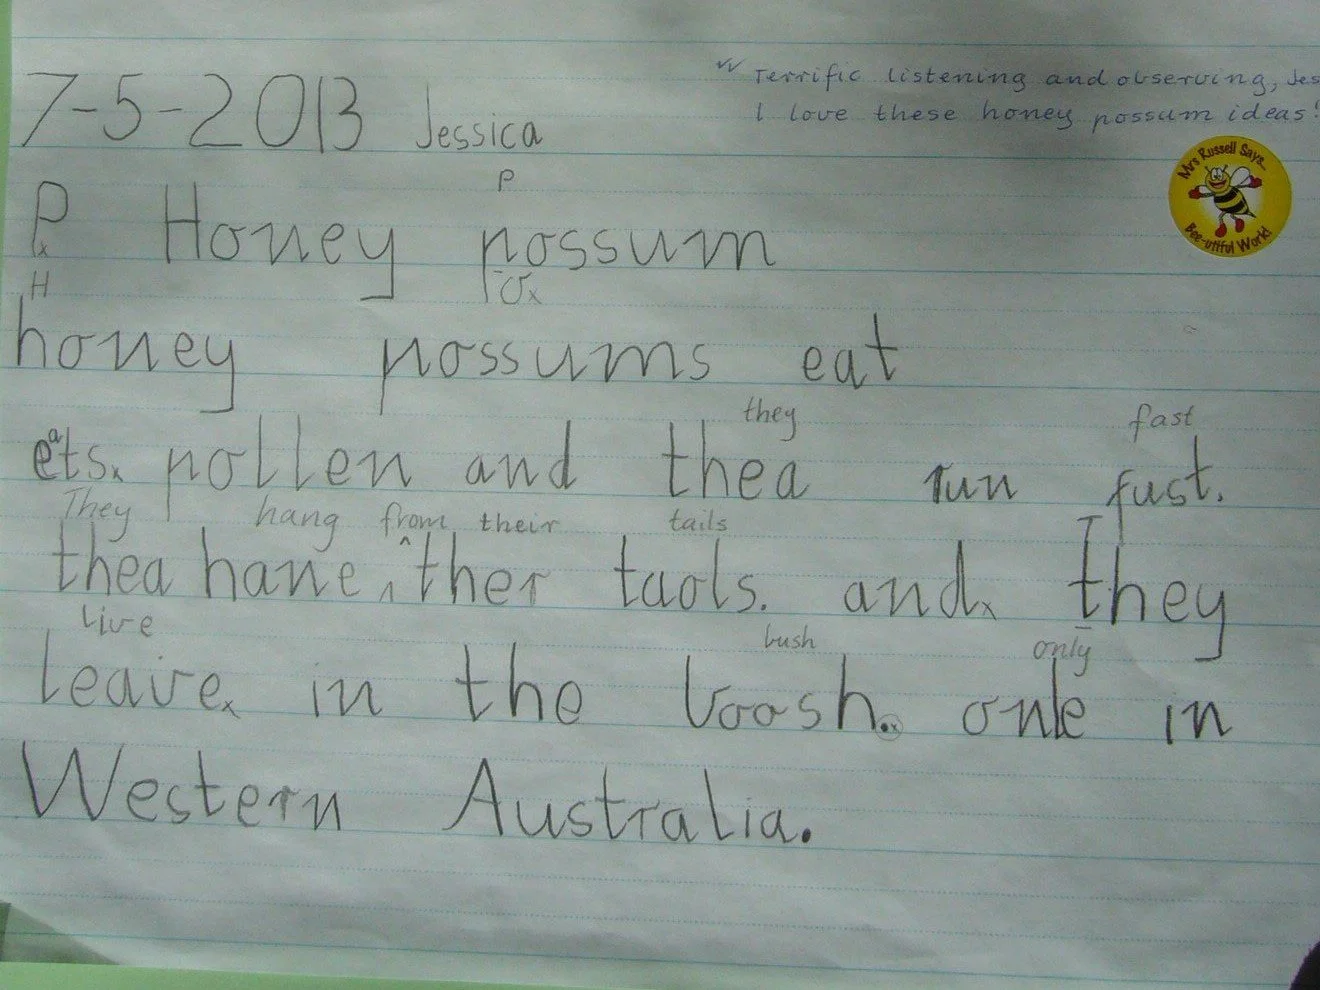 7-5-2013 Jessica
✓✓ Terrific listening and observing, Jes
I love these honey possum ideas!
Mrs Russell Says...
Bee-utiful Work!
P
P Honey possum
H
honey possums eat
they fast
eats. pollen and thea run fust.
They hang from their tails
thea hane ther taols. and They
live bush only
leave in the boosh. onle in
Western Australia.